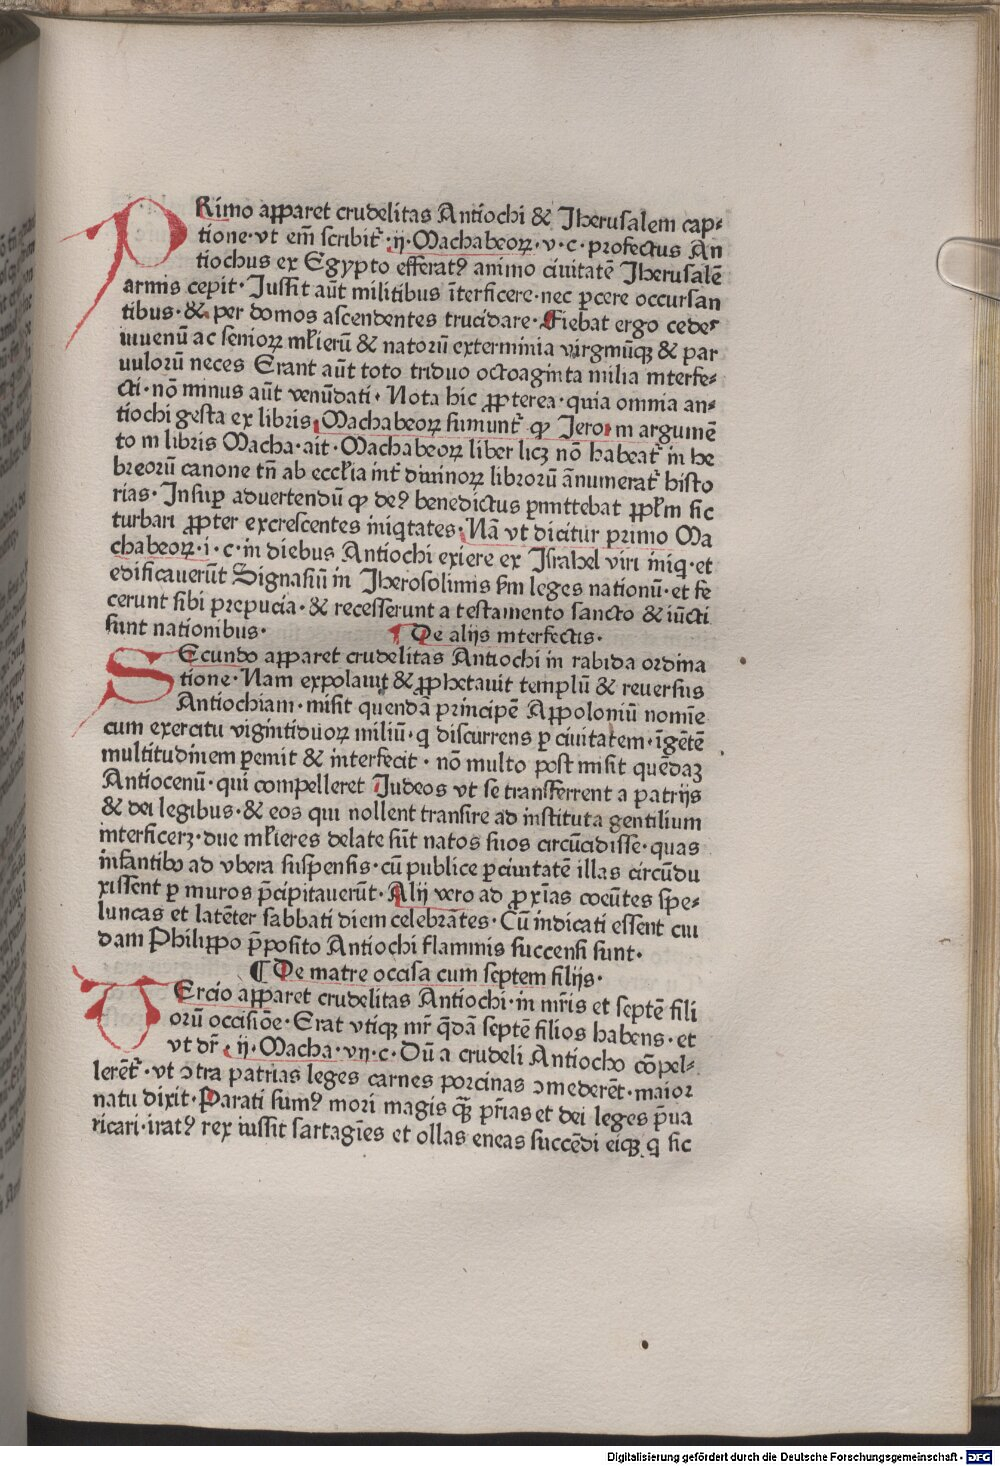 PRimo apparet crudelitas Antiochi & Jherusalem cap⸗
tione·vt em̄ scribit᷑·ij·Machabeoꝝ·v·c·profectus An
tiochus ex Egypto efferatꝰ animo ciuitatē Jherusalē
armis cepit·Jussit aūt militibus īterficere·nec ꝑcere occursan
tibus·& per domos ascendentes trucidare·Fiebat ergo cedes
iuuenū ac senioꝝ mĺierū & natorū exterminia virginūqꝫ & par
uulorū neces Erant aūt toto triduo octoaginta milia interfe⸗
cti·nō minus aūt venūdati·Nota hic ꝓpterea·quia omnia an⸗
tiochi gesta ex libris Machabeoꝝ sumunt᷑ ꝙ Jero·in argumē
to in libris Macha·ait·Machabeoꝝ liber licꝫ nō habeat᷑ in he
breorū canone tn̄ ab eccĺia int᷑ diuinoꝝ librorū ānumerat᷑ histo
rias·Insuꝑ aduertendū ꝙ deꝰ benedictus ꝑmittebat ppĺm sic
turbari ꝓpter excrescentes iniq̇tates·Nā vt dicitur primo Ma
chabeoꝝ·i·c·in diebus Antiochi exiere ex Israhel viri iniq̇·et
edificauerūt Signasiū in Jherosolimis sm̄ leges nationū·et fe
cerunt sibi prepucia·& recesserunt a testamento sancto & iūcti
sunt nationibus· ¶ De alijs interfectis·
SEcundo apparet crudelitas Antiochi in rabida ordina
tione·Nam expolauit & ꝓphetauit templū & reuersus
Antiochiam·misit quendā principē Appoloniū nomīe
cum exercitu vigintiduoꝝ miliū·q̇ discurrens ꝑ ciuitatem·īgētē
multitudinem ꝑemit & interfecit·nō multo post misit quēdaꝫ
Antiocenū·qui compelleret Judeos vt se transferrent a patrijs
& dei legibus·& eos qui nollent transire ad instituta gentilium
interficerꝫ·due mĺieres delate sūt natos suos circūcidisse·quas
infantibꝰ ad vbera suspensis·cū publice ꝑ ciuitatē illas circūdu
xissent ꝑ muros p̄cipitauerūt·Alij vero ad ꝓxīas coeūtes spe⸗
luncas et latēter sabbati diem celebrātes·Cū indicati essent cui
dam Philippo p̄posito Antiochi flammis succensi sunt·
¶ De matre occisa cum septem filijs·
TErcio apparet crudelitas Antiochi·in mr̄is et septē fili
orū occisiōe·Erat vtiqꝫ mr̄ q̄dā septē filios habens·et
vt dr̄·ij·Macha·vij·c·Dū a crudeli Antiocho cōpel⸗
lerēt᷑·vt ↄtra patrias leges carnes porcinas ↄmederēt·maior
natu dixit·Parati sumꝰ mori magis qꝫ̄ pr̄ias et dei leges p̄ua
ricari·iratꝰ rex iussit sartagīes et ollas eneas succēdi eiqꝫ q̇ sic
Digitalisierung gefördert durch die Deutsche Forschungsgemeinschaft - DFG